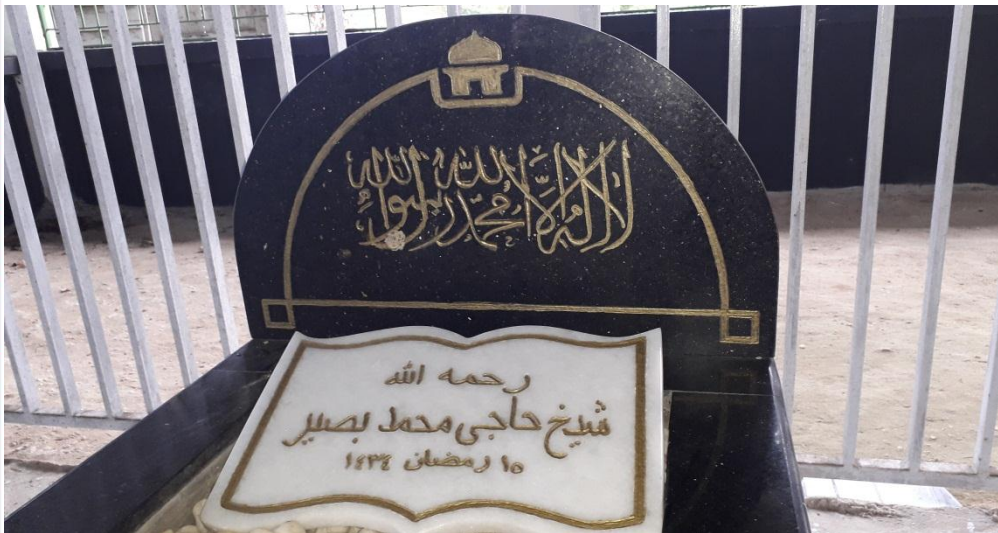 لا إله إلا الله محمد رسول الله
رحمه الله
شيخ حاجي محمد بصير
١٥ رمضان ١٤٣٤